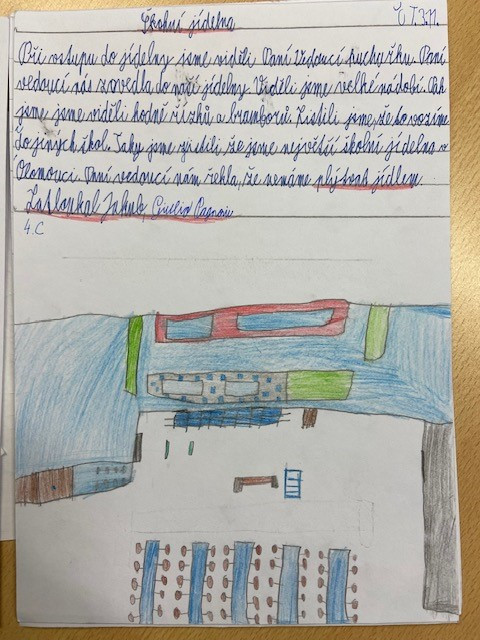 Školní jídelna
Při vstupu do jídelny jsme viděli Paní vedoucí kuchařku. Paní
vedoucí nás zavedla do naší jídelny. Viděli jsme velké nádobí. Pak
jsme jsme viděli hodně řízků a bramborů. Zjistili jsme, že to vozíme
do jiných škol. Taky jsme zjistili že jsme největší školní jídelna v
Olomouci. Paní vedoucí nám řekla, že nemáme plýtvat jídlem.
Zatloukal Jakub,
4.C